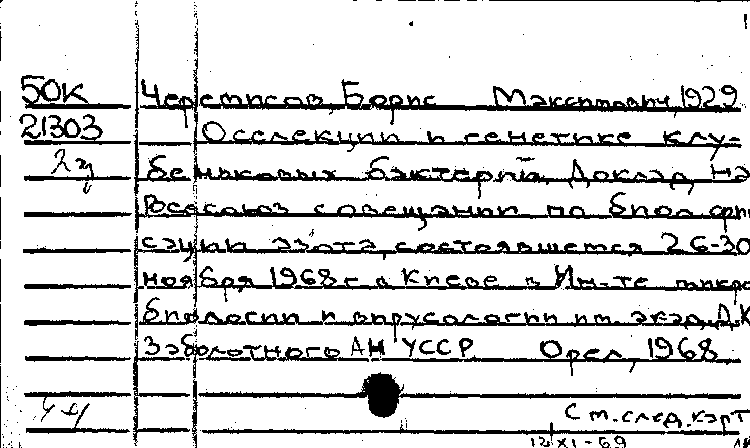 50К Черемисов, Борис Максимович, 1929
21303 О селекции и генетике клу-
2 э беньковых бактерий. Доклад на
Всесоюз совещании по биол фик
сации азота, состоявшемся 26-30
ноября 1968 г в Киеве в Ин-те микро
биологии и вирусологии им. акад. Д.К
Заболотного АН УССР Орел, 1968.
См. след. карт
12 XI-69